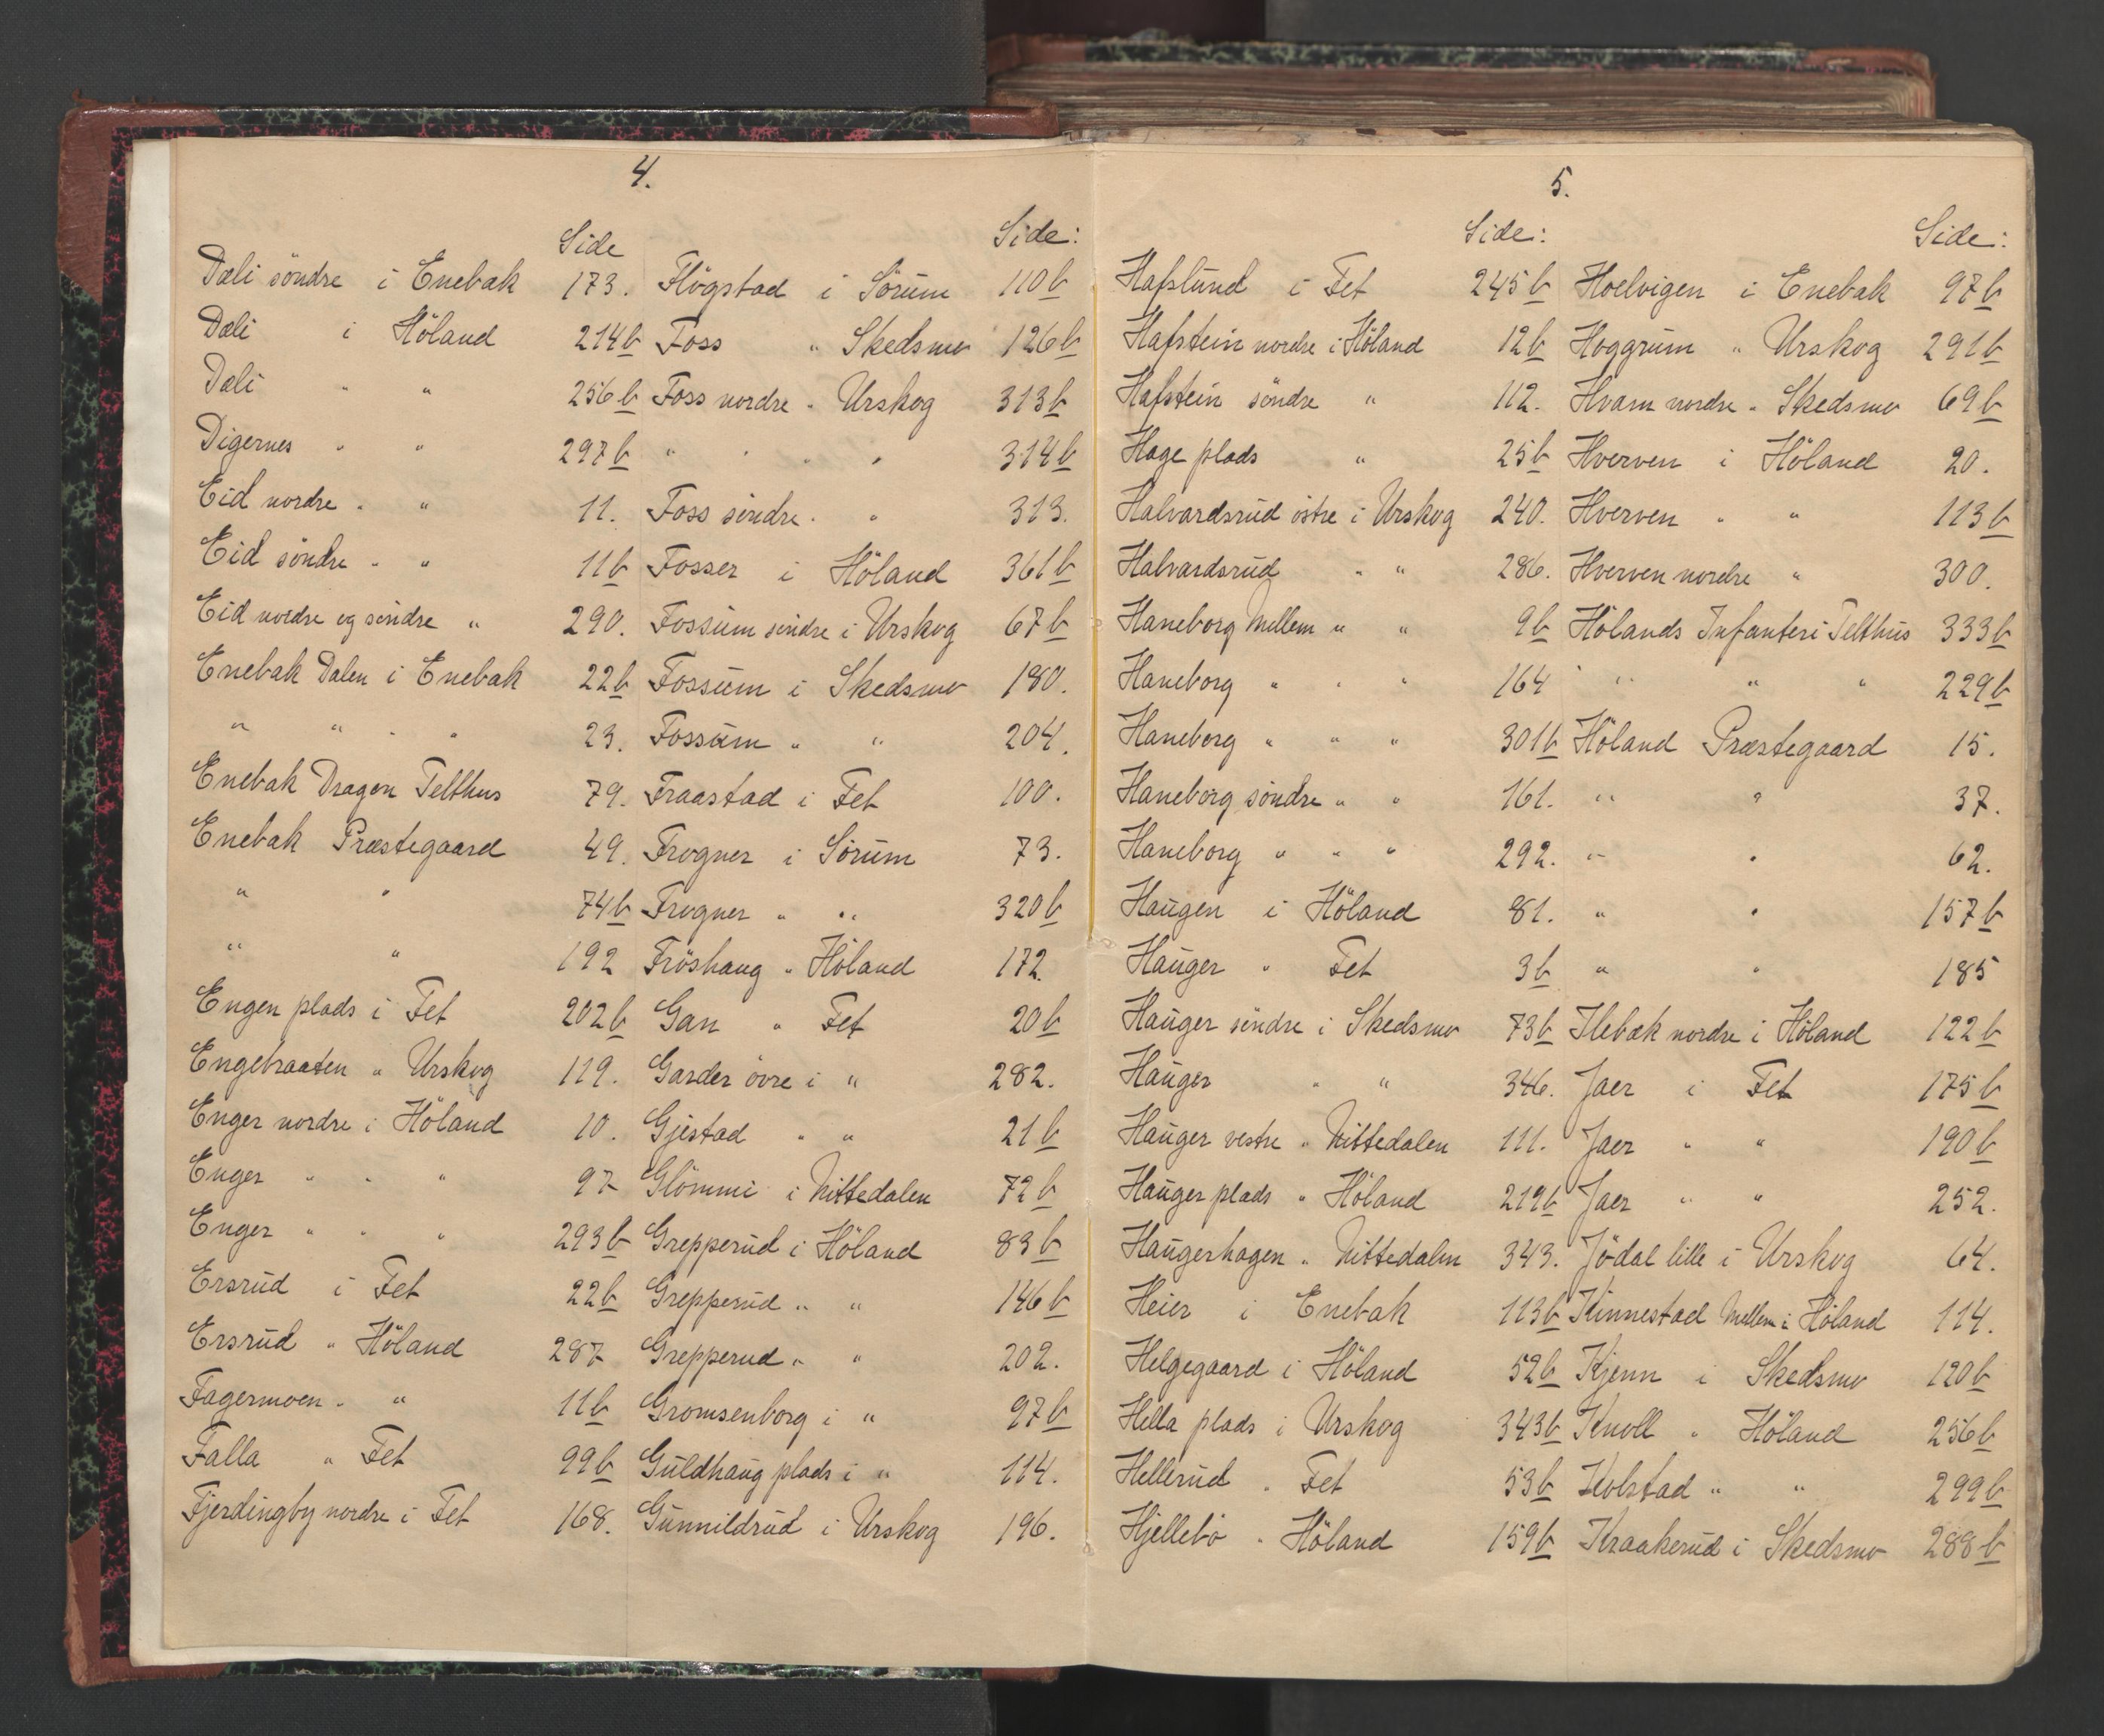 4.
Side
Dæli söndre i Enebak 173.
Dæli i Höland 214b
Dæli " " 256b
Digernes " " 297b
Eid nordre " " 11.
Eid söndre " " 11b
Eid nordre og söndre " 290.
Enebak Dalen i Enebak 22b
" " " " 23.
Enebak Dragon Telthus 79.
Enebak Præstegaard 49.
" " 74b
" " 192
Engen plads i Fet 202b
Engebraaten " Urskog 119.
Enger nordre i Höland 10.
Enger " " " 97
Enger " " " 293b
Ersrud i Fet 22b
Ersrud " Höland 287
Fagermoen " " 11b
Falla " Fet 99b
Fjerdingby nordre i Fet 168.
Side:
Flögstad i Sörum 110b
Foss " Skedsmo 126b
Foss nordre " Urskog 313b
" " " " 314b
Foss söndre " " 313.
Fosser i Höland 361b
Fossum söndre i Urskog 67b
Fossum i Skedsmo 180.
Fossum " " 204.
Fraastad i Fet 100.
Frogner i Sörum 73.
Frogner " " 320b
Fröshaug " Höland 172.
Gan " Fet 20b
Garder övre i " 282.
Gjestad " " 21b
Glömmi i Nittedalen 72b
Grepperud i Höland 83b
Grepperud " " 146b
Grepperud " " 202.
Gromsenborg i " 97b
Guldhaug plads i " 114.
Gunnildrud i Urskog 196.
5.
Side:
Hafslund i Fet 245b
Hafstein nordre i Höland 12b
Hafstein söndre " 112.
Hage plads " 25b
Halvardsrud östre i Urskog 240.
Halvardsrud " " 286.
Haneborg Mellem " " 9b
Haneborg " " " 164
Haneborg " " " 301b
Haneborg söndre " " 161.
Haneborg " " " 292.
Haugen i Höland 81.
Hauger " Fet 3b
Hauger söndre i Skedsmo 73b
Hauger " " 346.
Hauger vestre " Nittedalen 111.
Hauger plads " Höland 219b
Haugerhagen " Nittedalen 343.
Heier i Enebak 113b
Helgegaard i Höland 52b
Hella plads i Urskog 343b
Hellerud " Fet 53b
Hjellebö " Höland 159b
Side:
Hoelvigen i Enebak 97b
Hoggrum " Urskog 291b
Hvam nordre " Skedsmo 69b
Hverven i Höland 20.
Hverven " " 113b
Hverven nordre " 300.
Hölands Infanteri Telthus 333b
" " " " 229b
Höland Præstegaard 15.
" " 37.
" " 62.
" " 157b
" " 185
Ilebæk nordre i Höland 122b
Jaer i Fet 175b
Jaer " " 190b
Jaer " " 252.
Jödal lille i Urskog 64.
Kinnestad Mellem i Höland 114.
Kjenn i Skedsmo 120b
Knoll " Höland 256b
Kolstad " " 299b
Kraakerud i Skedsmo 288b